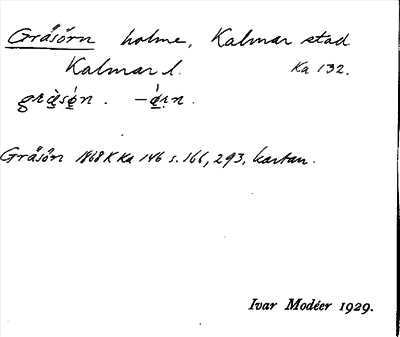 Gråsörn holme, Kalmar stad
Kalmar l. Ka 132.
Gråsön 1868 K Ka 146 s. 166, 293, kartan.
Ivar Modéer 1929.